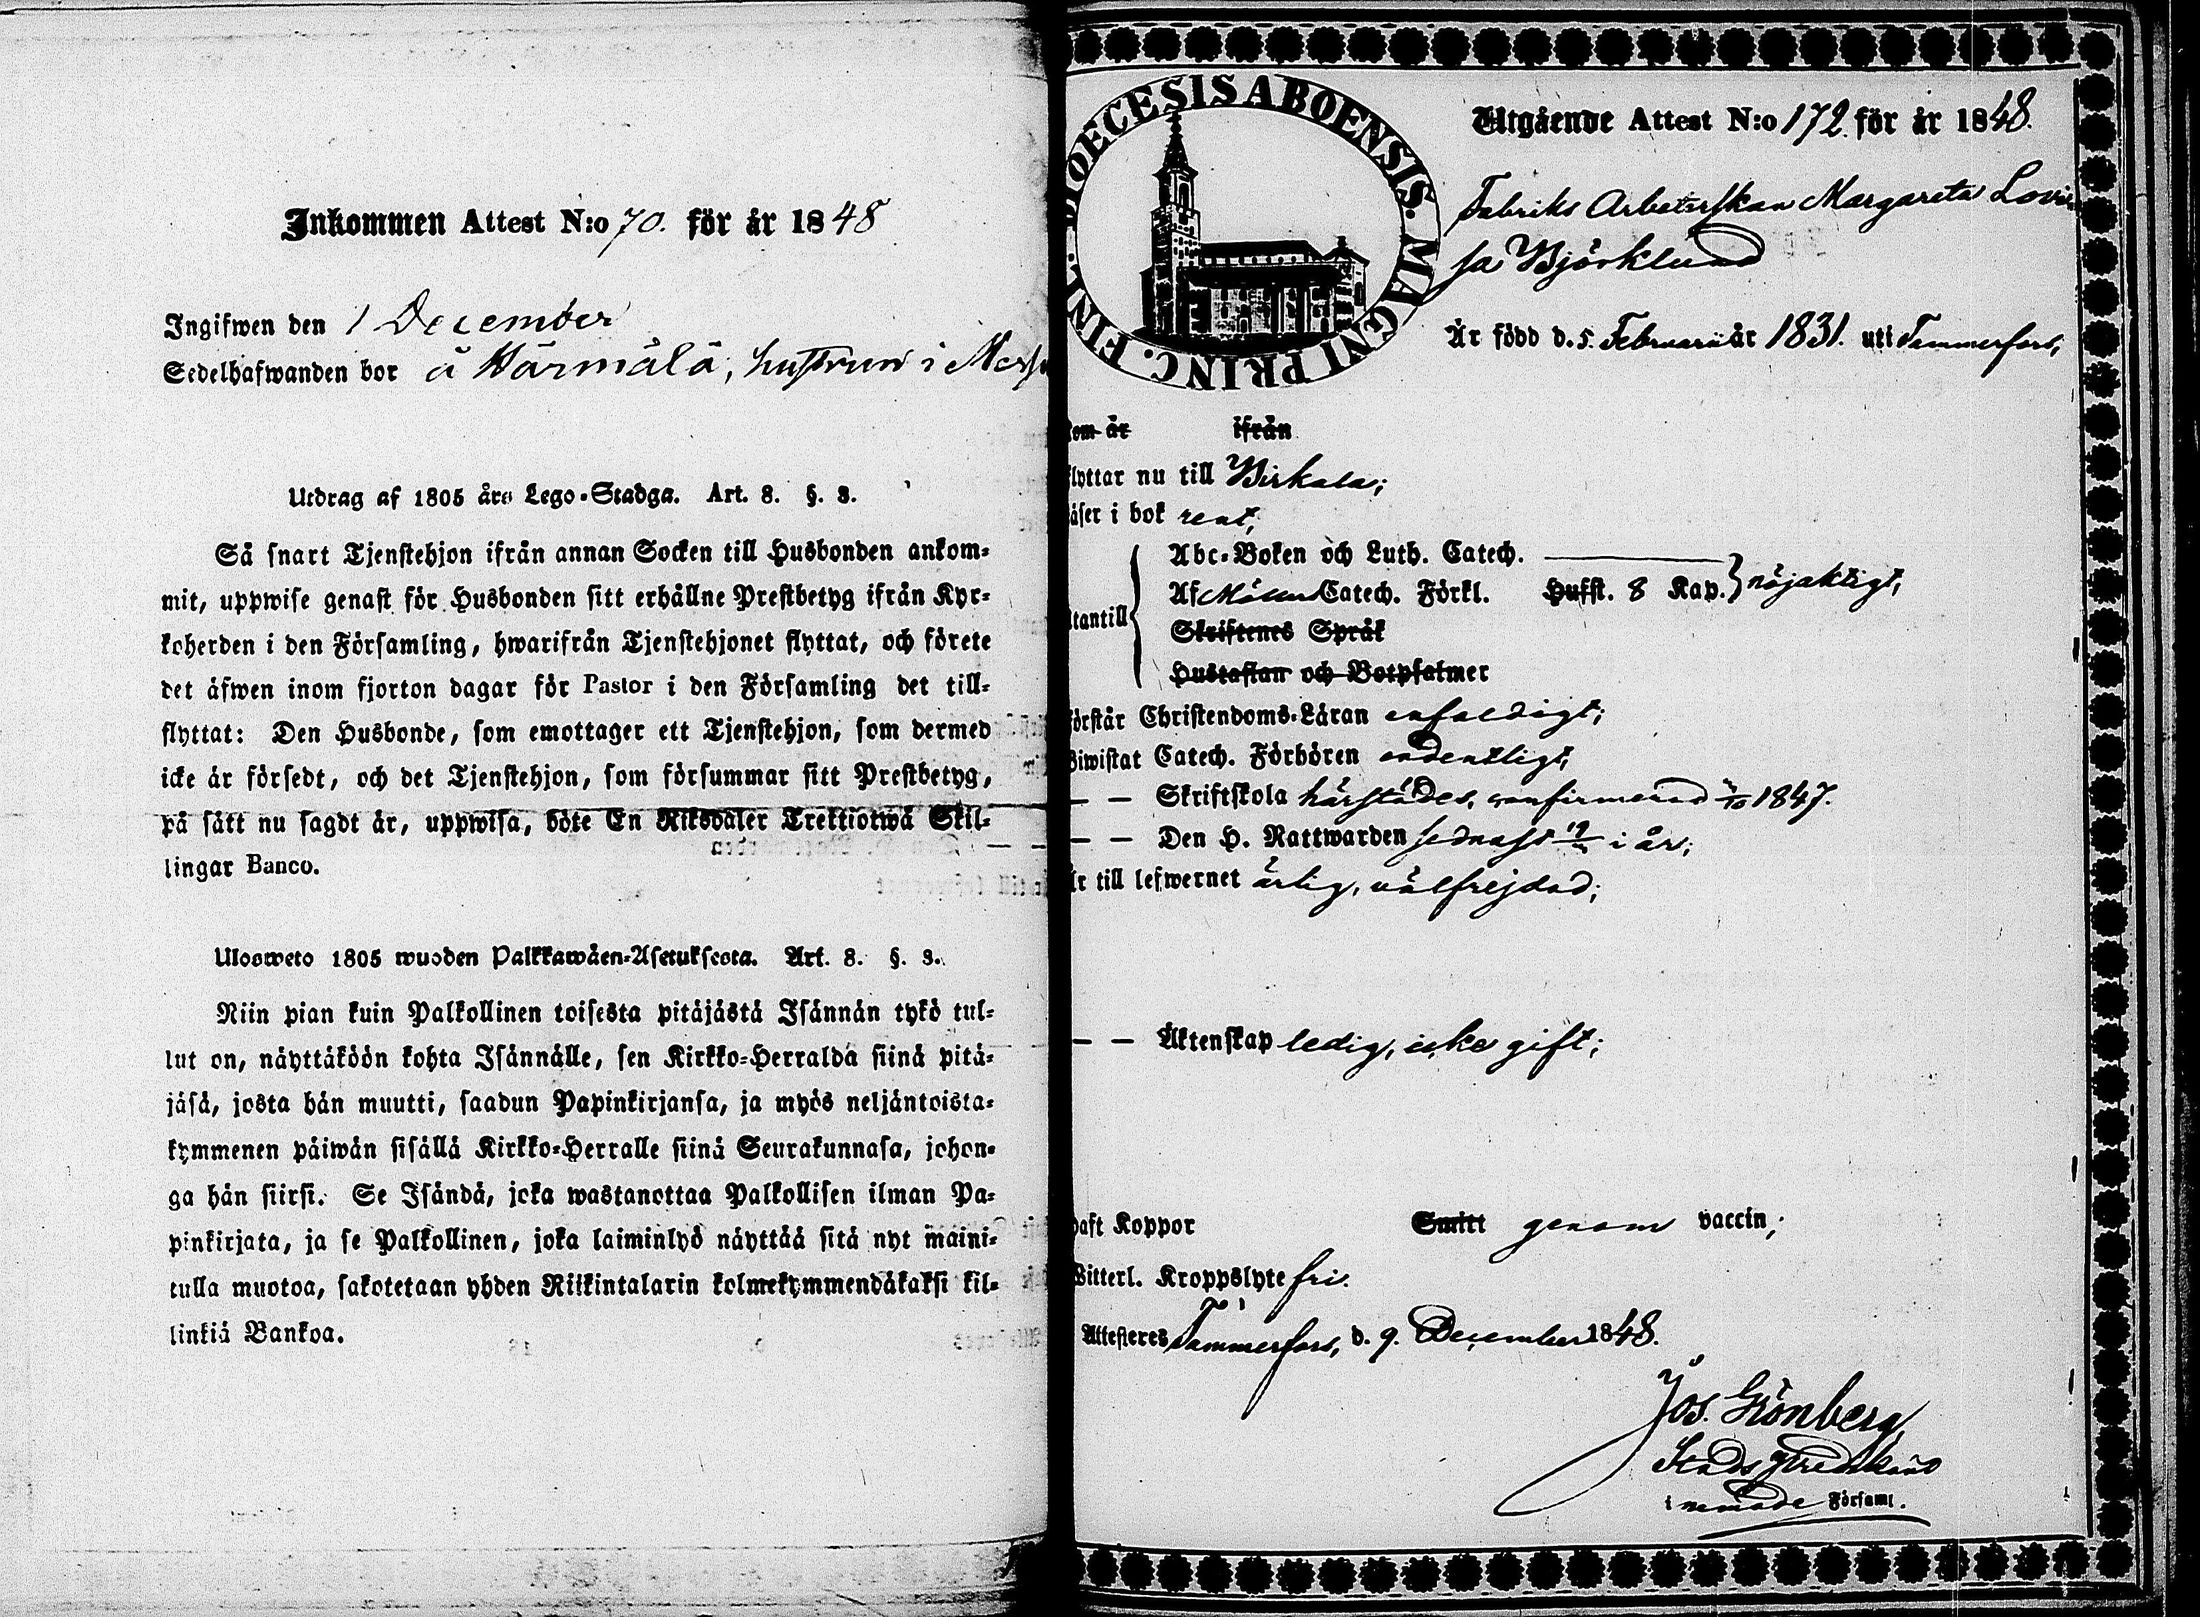 Inkommen Attest N:o 70. för år 1848
Ingifwen den 1 December
Sedelhafwanden bor å Härmälä, hustrun i
Utdrag af 1805 års Lego-Stadga. Art. 8. §. 3.
Så snart Tjenstehjon ifrån annan Socken till Husbonden ankom-
mit, uppwise genast för Husbonden sitt erhållne Prestbetyg ifrån Kyr-
koherden i den Församling, hwarifrån Tjenstehjonet flyttat, och förete
det äfwen inom fjorton dagar för Pastor i den Församling det till-
flyttat: Den Husbonde, som emottager ett Tjenstehjon, som dermed
icke är försedt, och det Tjenstehjon, som försummar sitt Prestbetyg,
på sätt nu sagdt är, uppwisa, böte En Riksdaler Trettiotwå Skil-
lingar Banco.
Ulosweto 1805 wuoden Palkkawäen-Asetuksesta. Art. 8. §. 3.
Niin pian kuin Palkollinen toisesta pitäjästä Isännän tykö tul-
lut on, näyttäköön kohta Isännälle, sen Kirkko-Herralda siinä pitä-
jäsä, josta hän muutti, saadun Papinkirjansa, ja myös neljäntoista-
kymmenen päiwän sisällä Kirkko-Herralle siinä Seurakunnasa, johon-
ga hän siirsi. Se Isändä, joka wastanottaa Palkollisen ilman Pa-
pinkirjata, ja se Palkollinen, joka laiminlyö näyttää sitä nyt maini-
tulla muotoa, sakotetaan yhden Riikintalarin kolmekymmendäkaksi kil-
linkiä Bankoa.
DIOECESIS ABOENSIS. MAGNI PRINC. FINL.
Utgående Attest N:o 172. för år 1848.
Fabriks Arbeterskan Margareta Lovi
sa Björklund
Är född d. 5. Februarii år 1831. uti Tammerfors,
kom år ifrån
flyttar nu till Birkala;
läser i bok rent,
Abc-Boken och Luth. Catech.
utantill Af Möllers Catech. Förkl. Husst. 8 Kap. nöjaktigt,
Skriftenes Språk
Hustaflan och Botpsalmer
förstår Christendoms-Läran enfaldigt;
Biwistat Catech. Förhören ordentligt,
— — Skriftskola härstädes, confirmerad 3/10 1847.
— — Den H. Nattwarden sednast i år;
Är till lefwernet ärlig, välfrejdad;
— — Äktenskap ledig, icke gift;
haft Koppor Smitt genom vaccin;
Witterl. Kroppslyte fri.
Attesteres Tammerfors, d. 9. December 1848.
Jos. Grönberg
i nämnde Församl.